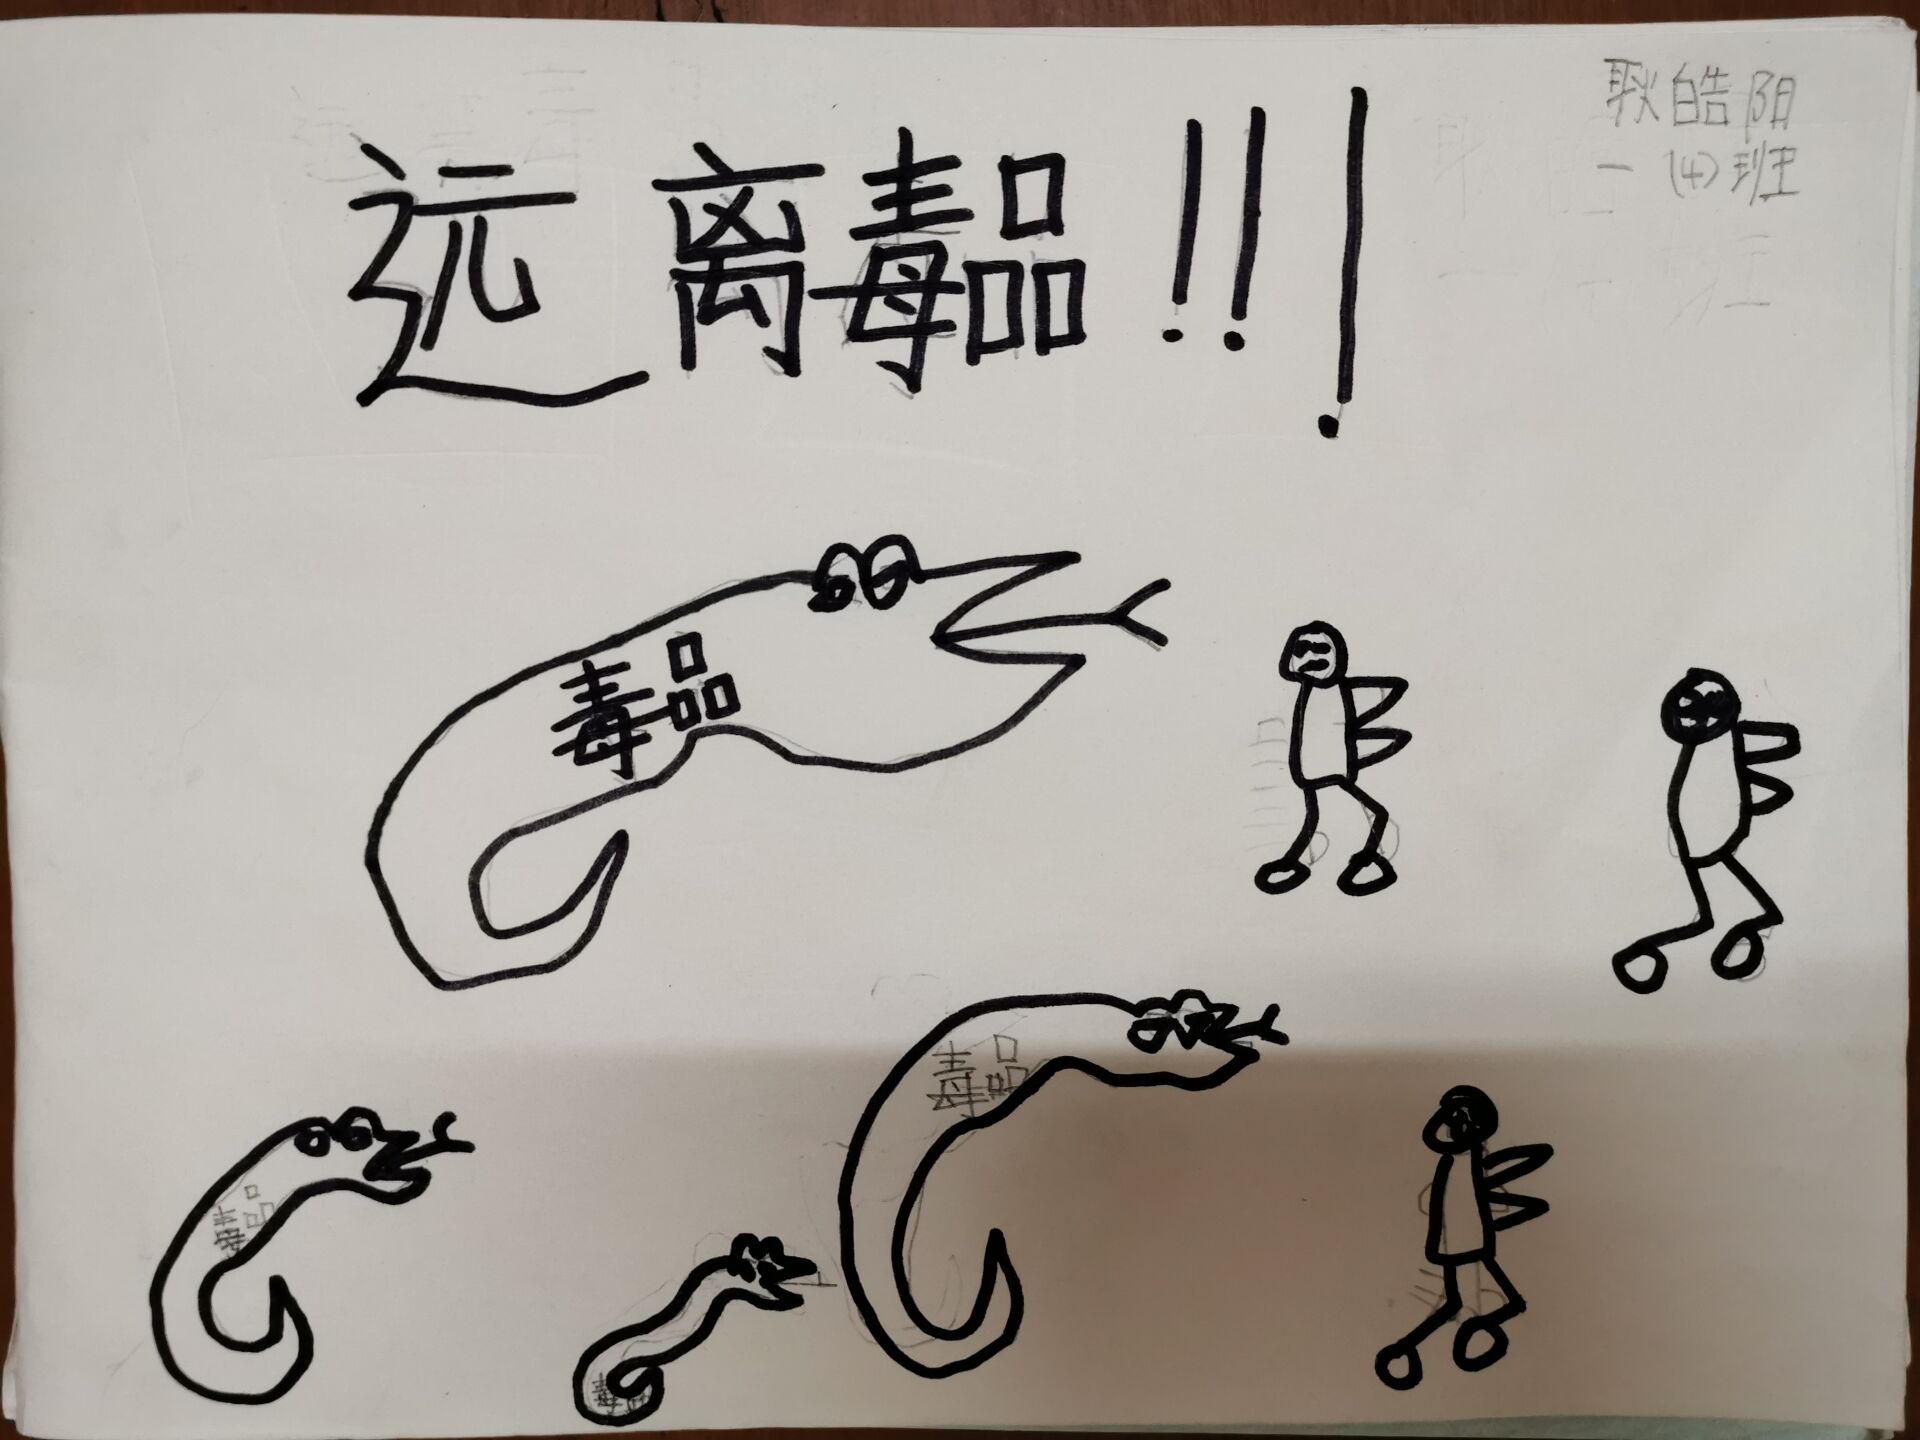 耿皓阳
一(4)班
远离毒品!!!
毒品
毒品
毒品
毒品